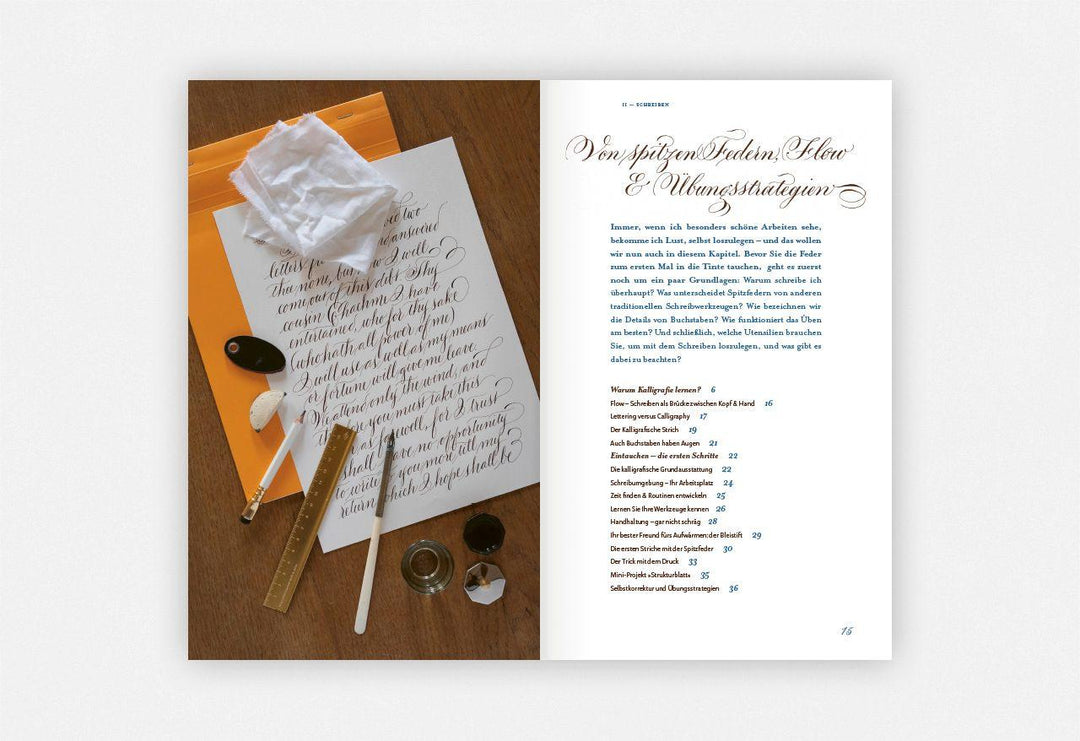 two
answered
letters
thee none, I well
come out of this debt. Thy
cousin I have
entertained, who for thy sake
(who hath all power of me)
I will use as well as my means
or fortune will give me leave.
We attend only the wind, and
you must take this
as well, for I trust
shall have no opportunity
to write you more till my
return which I hope shall be
II — SCHREIBEN
Von spitzen Federn, Flow
& Übungsstrategien
Immer, wenn ich besonders schöne Arbeiten sehe,
bekomme ich Lust, selbst loszulegen – und das wollen
wir nun auch in diesem Kapitel. Bevor Sie die Feder
zum ersten Mal in die Tinte tauchen, geht es zuerst
noch um ein paar Grundlagen: Warum schreibe ich
überhaupt? Was unterscheidet Spitzfedern von anderen
traditionellen Schreibwerkzeugen? Wie bezeichnen wir
die Details von Buchstaben? Wie funktioniert das Üben
am besten? Und schließlich, welche Utensilien brauchen
Sie, um mit dem Schreiben loszulegen, und was gibt es
dabei zu beachten?
Warum Kalligrafie lernen? 6
Flow – Schreiben als Brücke zwischen Kopf & Hand 16
Lettering versus Calligraphy 17
Der Kalligrafische Strich 19
Auch Buchstaben haben Augen 21
Eintauchen – die ersten Schritte 22
Die kalligrafische Grundausstattung 22
Schreibumgebung – Ihr Arbeitsplatz 24
Zeit finden & Routinen entwickeln 25
Lernen Sie Ihre Werkzeuge kennen 26
Handhaltung – gar nicht schräg 28
Ihr bester Freund fürs Aufwärmen: der Bleistift 29
Die ersten Striche mit der Spitzfeder 30
Der Trick mit dem Druck 33
Mini-Projekt »Strukturblatt« 35
Selbstkorrektur und Übungsstrategien 36
15